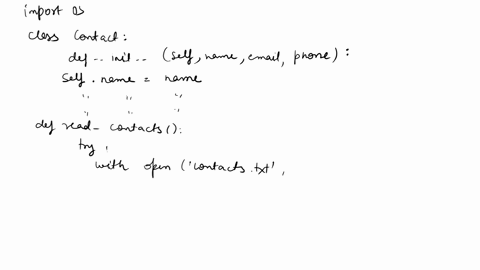 import os
class Contact:
def __init__ (self, name, email, phone):
self.name = name
" " "
" " "
def read_contacts():
try,
with open ('contacts.txt',